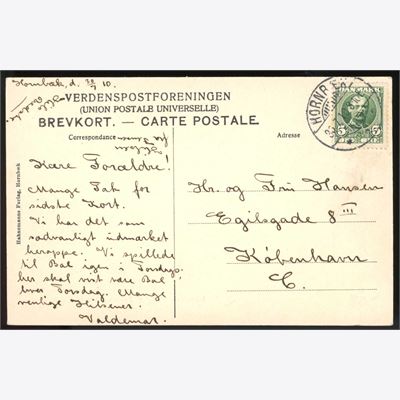 Hornbæk, d. 30/7 10.
VERDENSPOSTFORENINGEN
(UNION POSTALE UNIVERSELLE)
BREVKORT. — CARTE POSTALE.
Correspondance
Adresse
Kære Forældre!
Mange Tak for
sidste Kort.
Vi har det som
sædvanligt udmærket
heroppe. Vi spillede
til Bal igen i Torsdags.
her skal vist være Bal
hver Torsdag. Mange
venlige Hilsener.
Valdemar.
Hr. og Fru Hansen
Egilsgade 8 III
København
C.
DANMARK
5 5
HORNB
Hahnemanns Forlag, Hornbæk